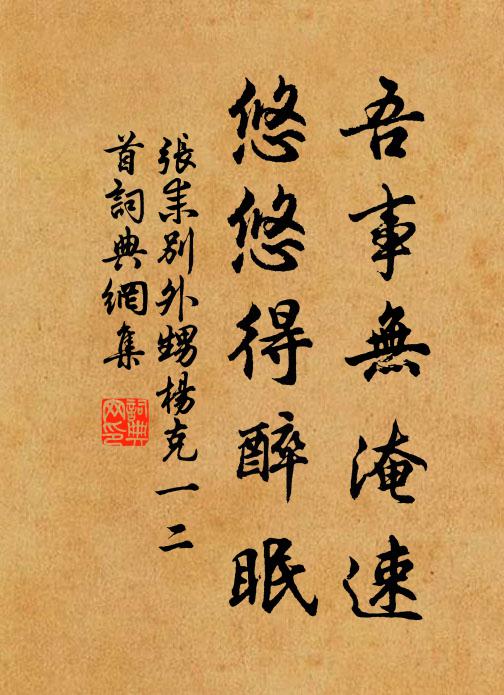 吾事無淹速
悠悠得醉眠
張耒別外甥楊克一二
首詞典網集
詞典
网印